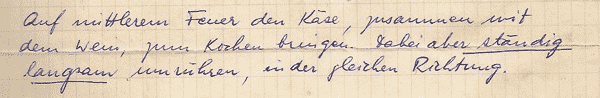 Auf mittlerem Feuer den Käse, zusammen mit
dem Wein, zum Kochen bringen. Dabei aber ständig
langsam umrühren, in der gleichen Richtung.